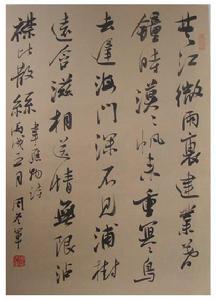 楚江微雨裏建業暮
鐘時漠漠帆來重冥冥鳥
去遲海門深不見浦樹
遠含滋相送情無限沾
襟比散絲
韋應物詩
丙戌 月周 軍